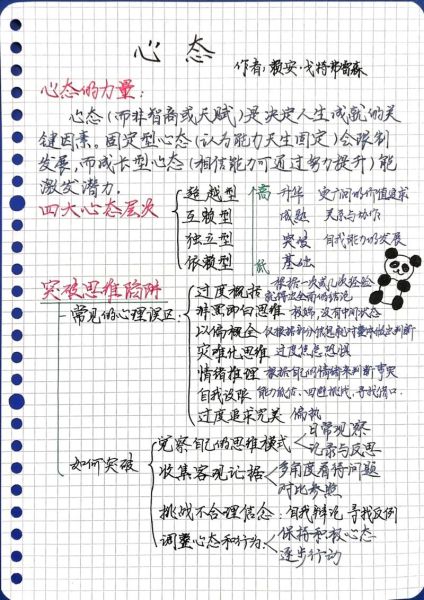 心态
作者:赖安·戈特弗雷森
心态的力量:
心态(而非智商或天赋)是决定人生成就的关
键因素。固定型心态(认为能力天生固定)会限制
发展,而成长型心态(相信能力可通过努力提升)能
激发潜力.
四大心态层次
超越型 高 升华 更广阔的价值追求
互赖型 成熟 关系与协作
独立型 突破 自我能力的发展
依赖型 低 基础
突破思维陷阱
常见的心理误区:
过度概括 根据一次或几次经验
就得出全面的结论
非黑即白思维 极端,没有中间状态
以偏概全 仅根据部分信息就对整体做出判断
灾难化思维 过度焦虑恐惧
情绪推理 根据自己的情绪来判断事实
自我设限 能力低估、回避挑战、寻找借口
过度追求完美 偏执
如何突破
觉察自己的思维模式 日常观察
记录与反思
收集客观证据 多角度看待问题
对比参照
挑战不合理信念:自我辩论 寻找反例
调整心态和行为: 保持积极心态
逐步行动